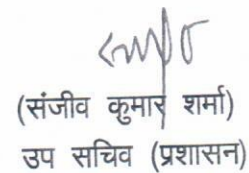 (संजीव कुमार शर्मा)
उप सचिव (प्रशासन)